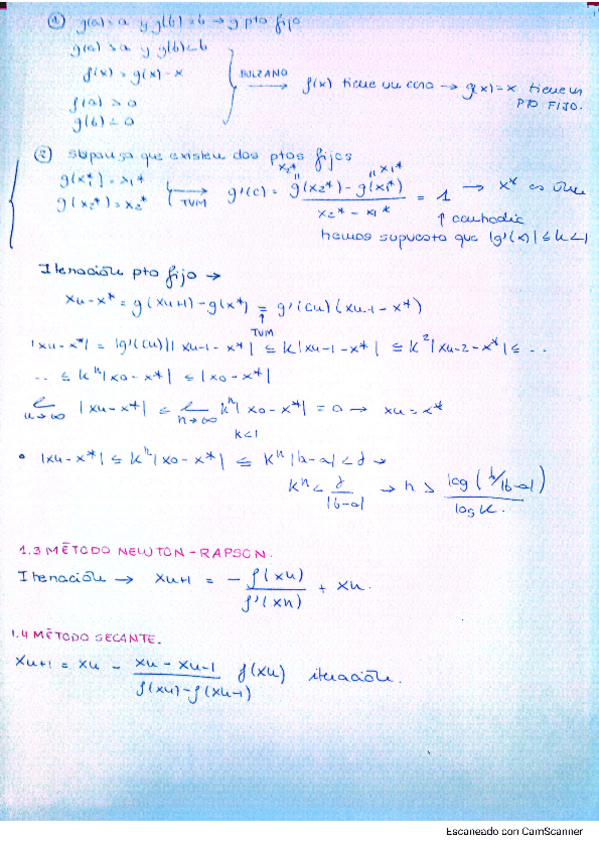 ① g(a) = a y g(b) = b → g pto fijo
g(a) > a y g(b) < b
f(x) = g(x) - x
f(a) > 0
g(b) < 0
BOLZANO → f(x) tiene un cero → g(x) = x tiene un
PTO FIJO.
② supongo que existen dos ptos fijos
g(x1*) = x1*
g(x2*) = x2*
TVM g'(c) = g(x2*) - g(x1*) / x2* - x1* = 1 → x* es único
x2* x1*
↑ contradic
hemos supuesto que |g'(x)| ≤ k < 1
Iteración pto fijo →
xn - x* = g(xn+1) - g(x*) = g'(cn)(xn-1 - x*)
↑
TVM
|xn - x*| = |g'(cn)|| xn-1 - x*| ≤ k|xn-1 - x*| ≤ k²|xn-2 - x*| ≤ ..
.. ≤ kⁿ|x0 - x*| ≤ |x0 - x*|
n→∞ |xn - x*| ≤ n→∞ kⁿ|x0 - x*| = 0 → xn = x*
k<1
• |xn - x*| ≤ kⁿ|x0 - x*| ≤ kⁿ|b-a| < δ →
kⁿ < δ / |b-a| → n > log( /|b-a|) / log k.
1.3 MÉTODO NEWTON-RAPSON.
Iteración → xn+1 = - f(xn) / f'(xn) + xn.
1.4 MÉTODO SECANTE.
xn+1 = xn - xn - xn-1 / f(xn) - f(xn-1) f(xn) iteración.
Escaneado con CamScanner